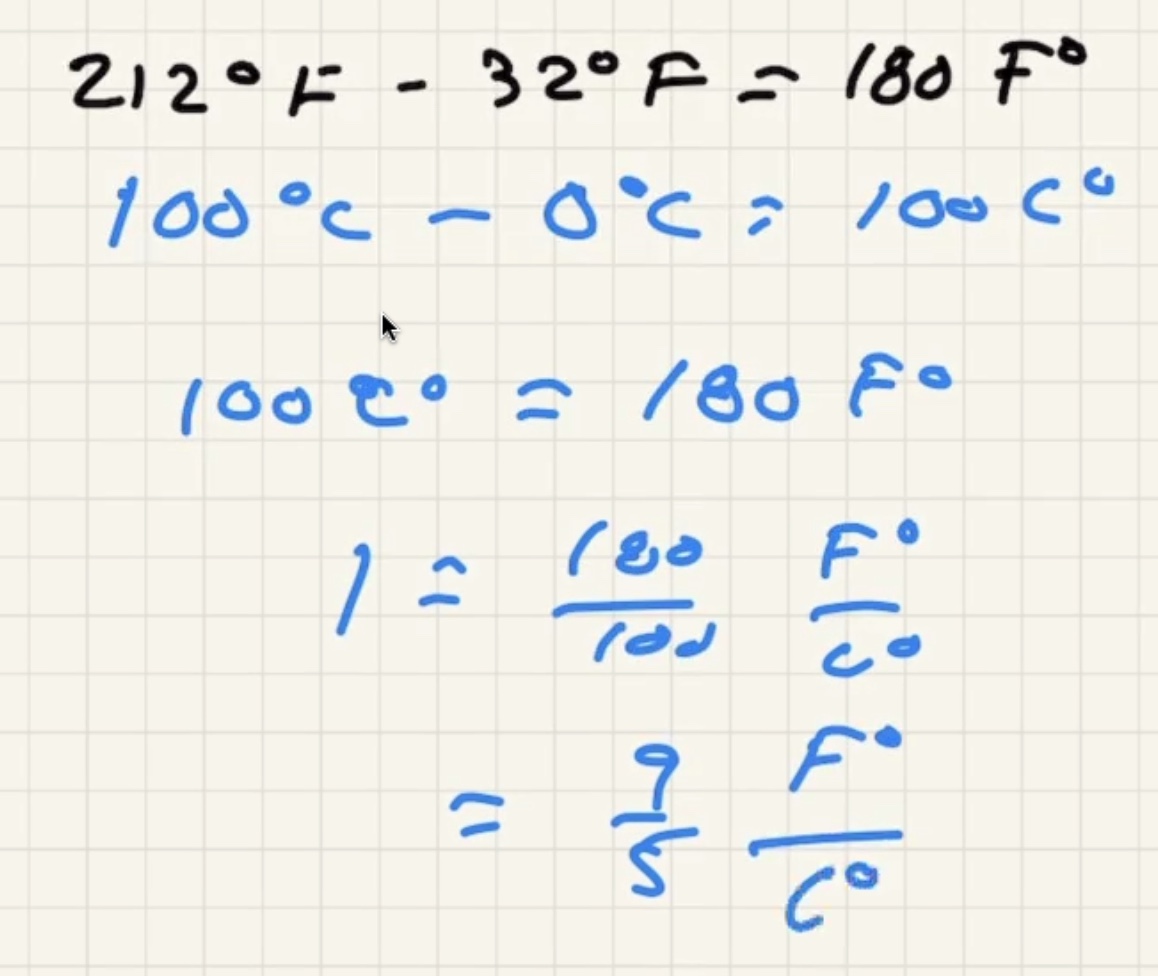 212°F - 32°F = 180 F°
100°C - 0°C = 100 C°
100 C° = 180 F°
1 = 180/100 F°/C°
= 9/5 F°/C°